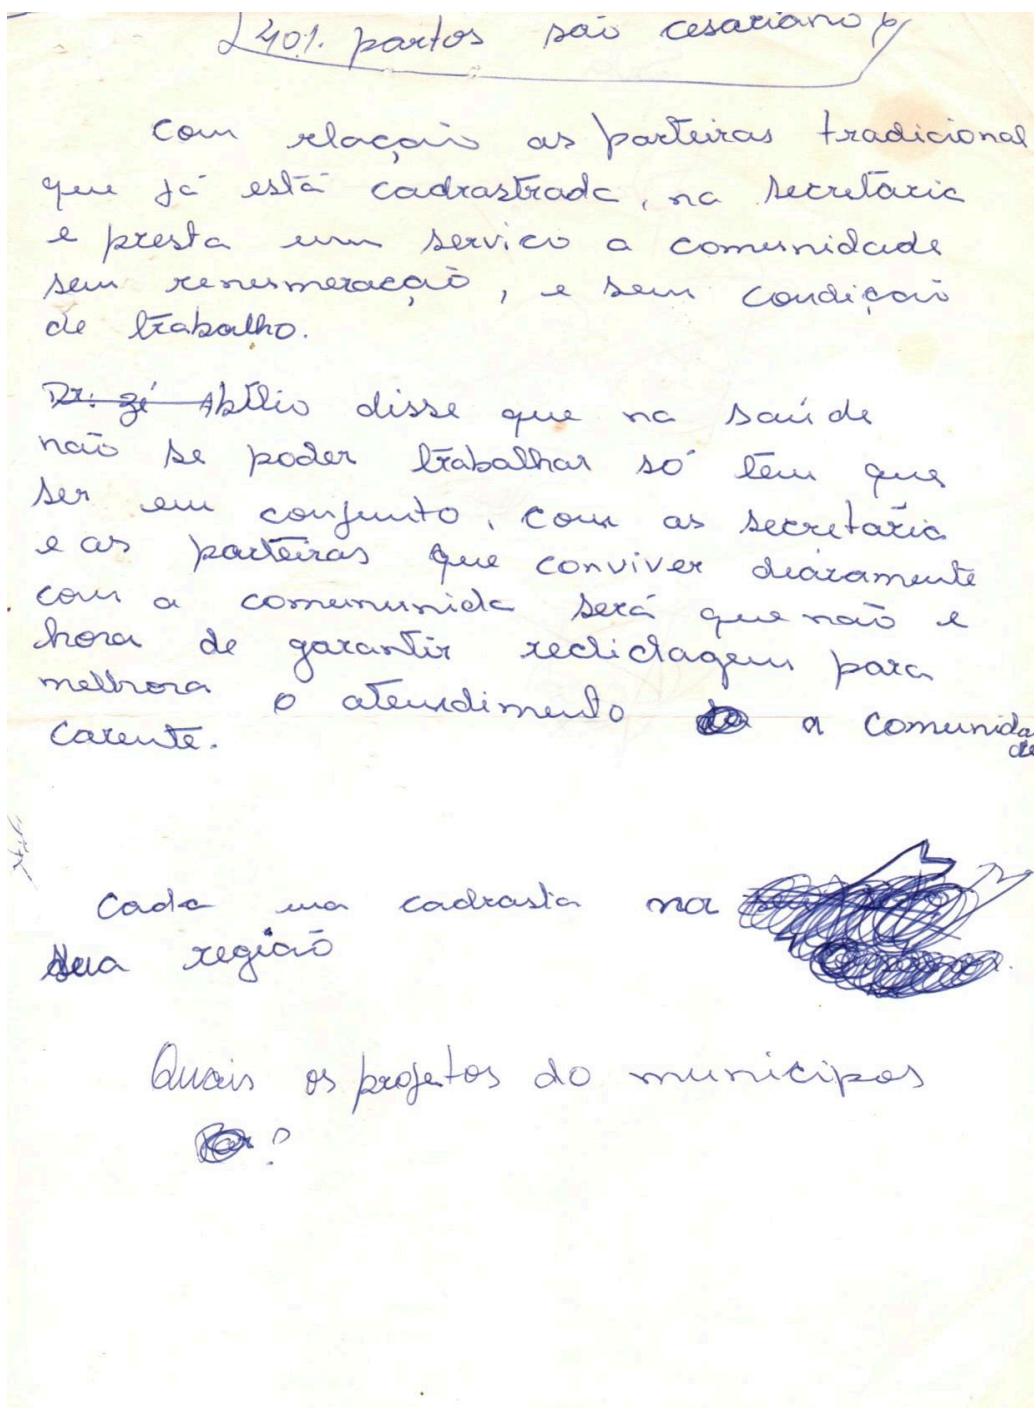 40% partos são cesariano
Com relação as parteiras tradicional
que já está cadrastrada, na secretaria
e presta um servico a comunidade
sem renumeracão, e sem condição
de trabalho.
Dr. Zé Abílio disse que na saúde
não se poder trabalhar só têm que
ser em conjunto, com as secretaria
e as parteiras que conviver diaramente
com a comemunida será que não e
hora de garantir reclidagem para
melhora o atendimento a comunidade
carente.
Cada uma cadrasta na
sua região
Quais os projetos do municipos
?